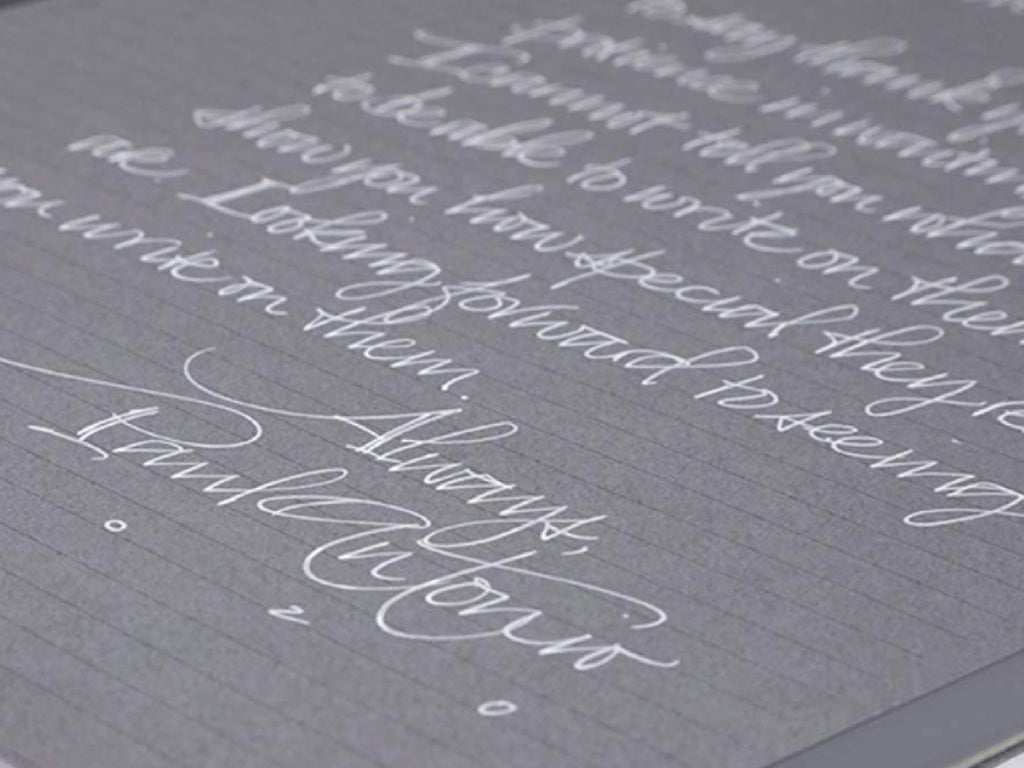 to say thank y
patience in writin
I cannot tell you wha
to be able to write on them
show you how special they re
are. Looking forward to seeing
you write on them.
Always,
Paul Antonio